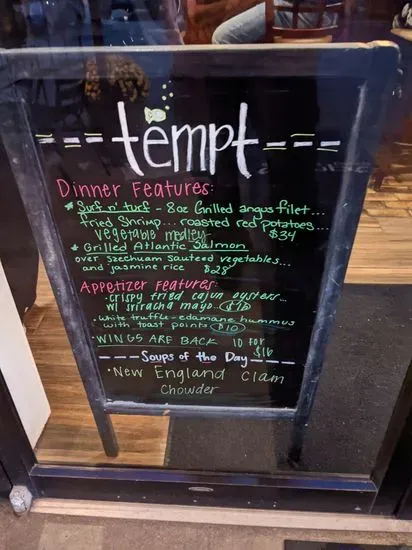 tempt
Dinner Features:
* Surf n' turf - 8oz Grilled angus filet...
fried Shrimp... roasted red potatoes...
vegetable medley- $34
* Grilled Atlantic Salmon
over Szechuam Sauteed vegetables...
and jasmine rice $28
Appetizer features:
• crispy fried cajun oysters...
w/ sriracha mayo.
• white truffle-edamame hummus
with toast points $10
• WINGS ARE BACK 10 FOR
$16
Soups of the Day
• New England Clam
Chowder